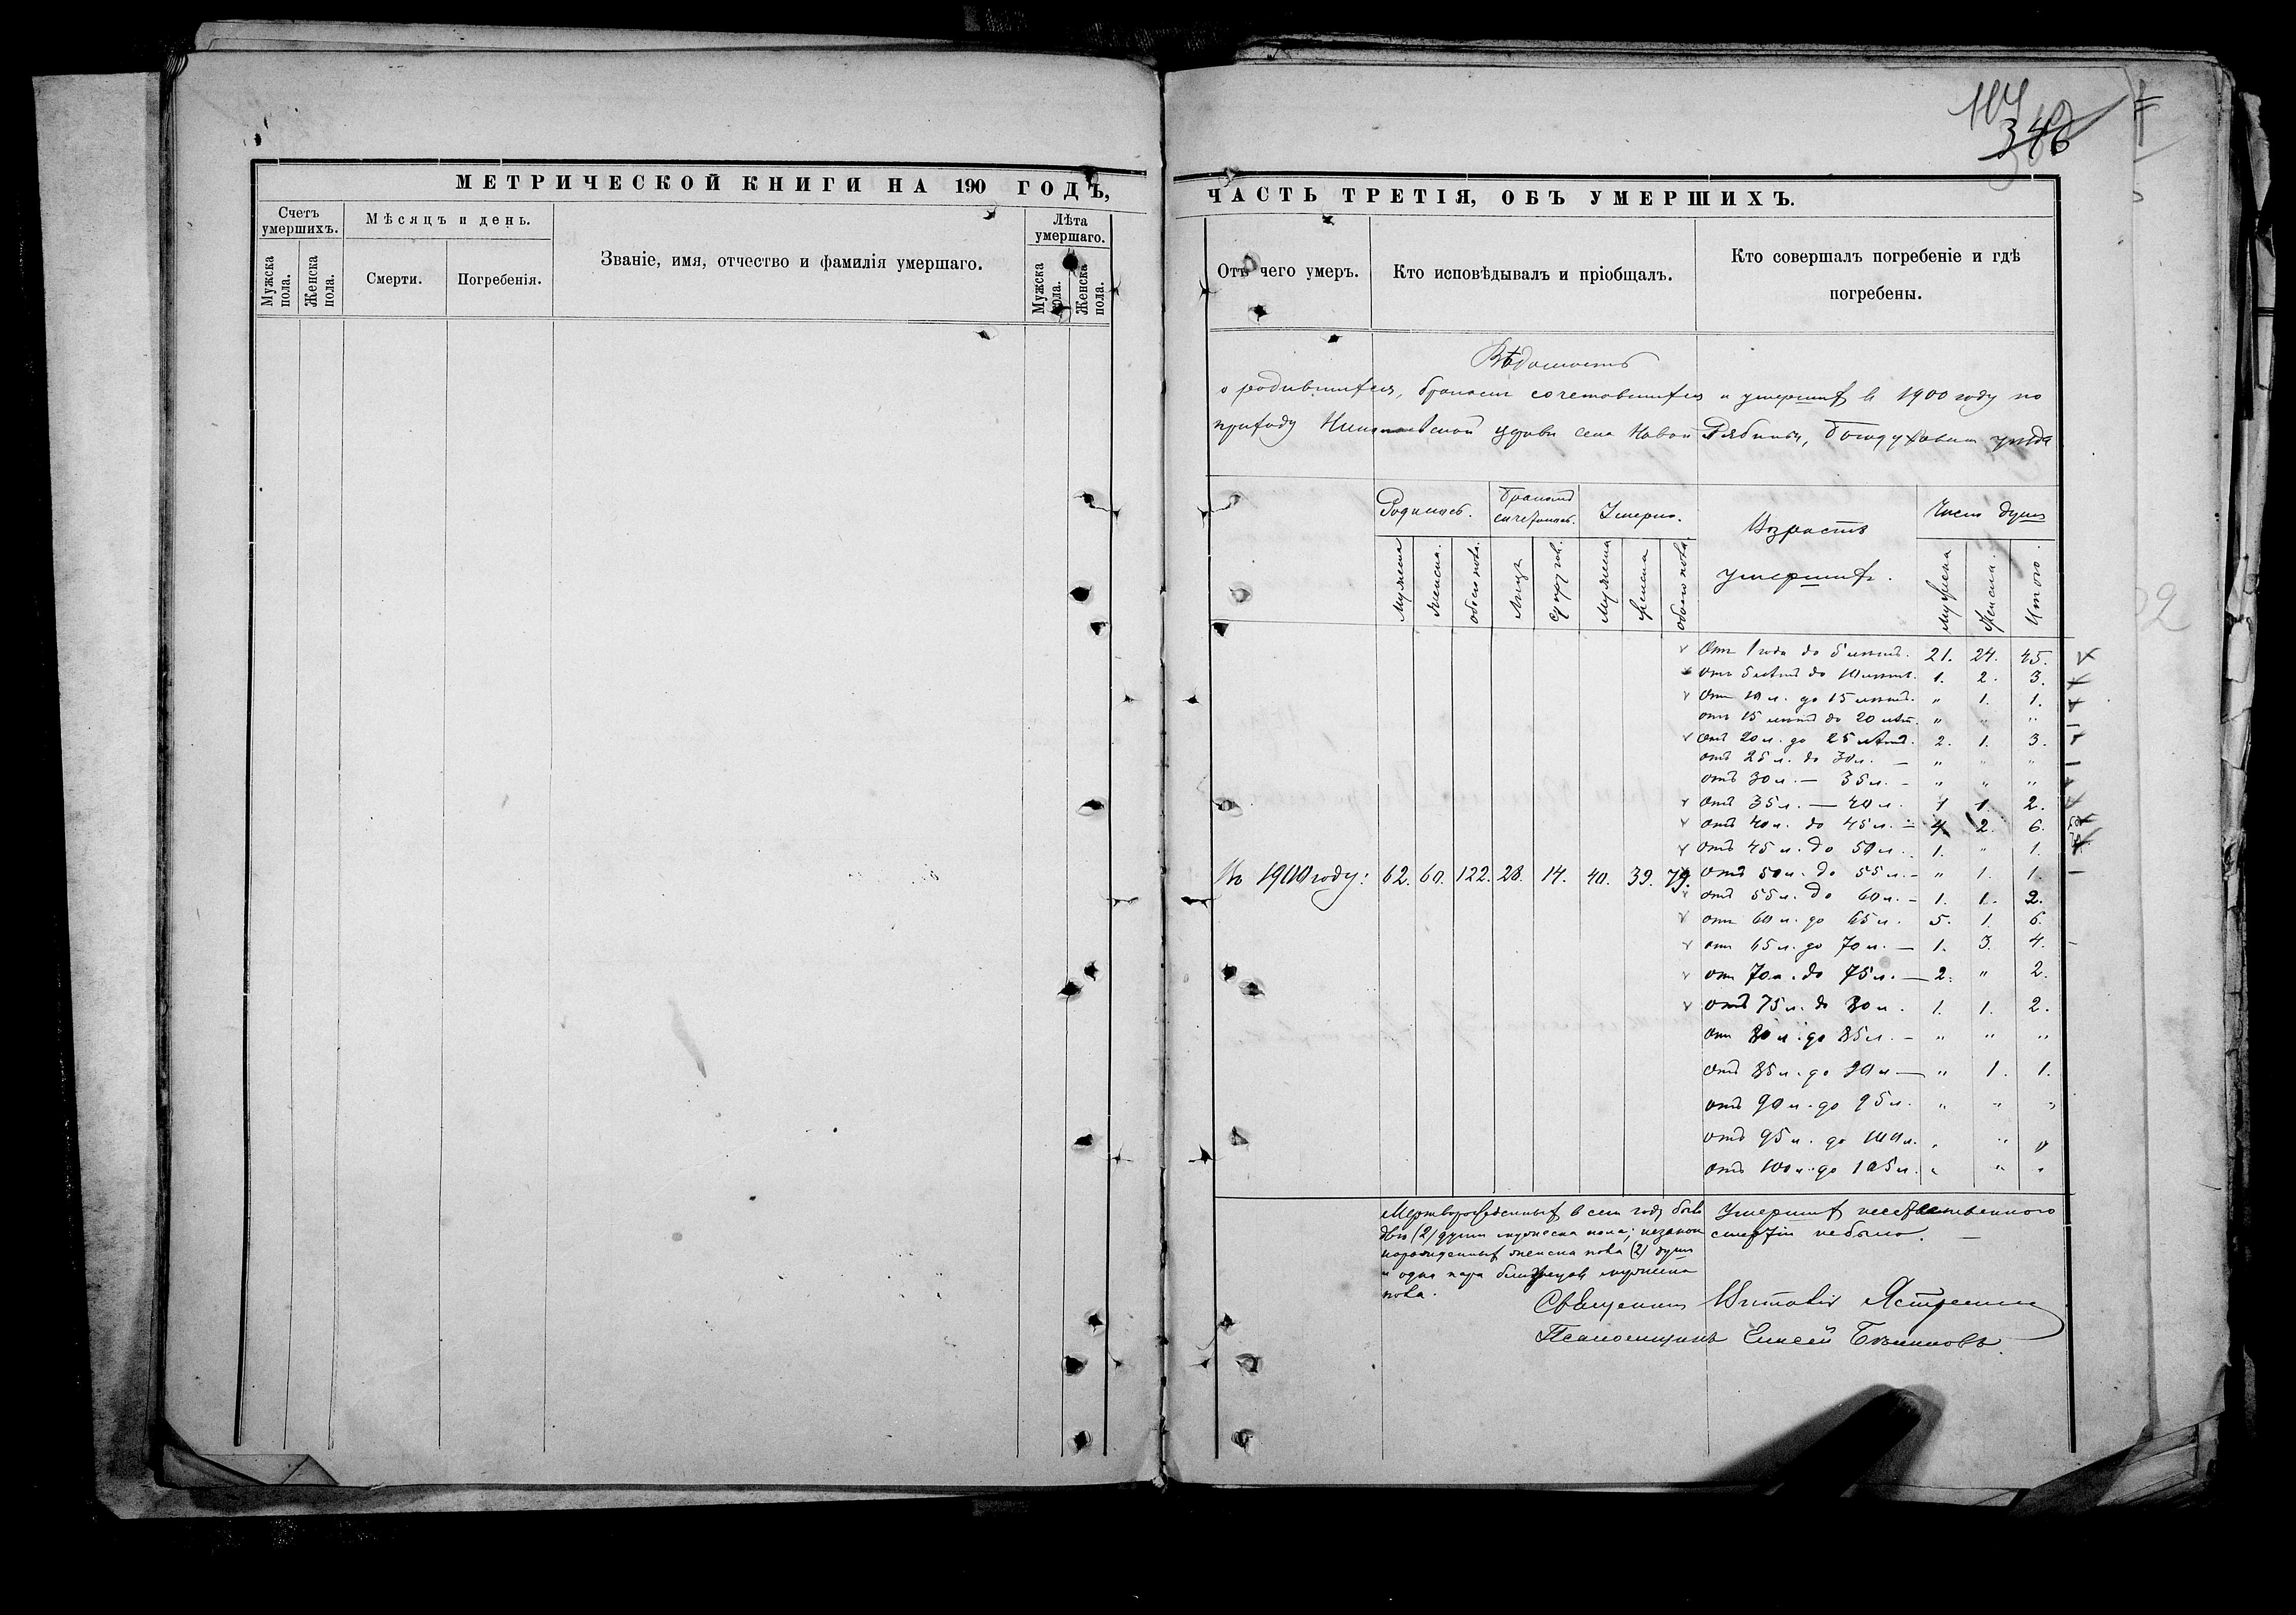 114
346
МЕТРИЧЕСКОЙ КНИГИ НА 190 ГОДЪ,
Счетъ умершихъ.
Мѣсяцъ и день.
Званіе, имя, отчество и фамилія умершаго.
Лѣта умершаго.
Мужска пола.
Женска пола.
Смерти.
Погребенія.
Мужска пола.
Женска пола.
ЧАСТЬ ТРЕТІЯ, ОБЪ УМЕРШИХЪ.
Отъ чего умеръ.
Кто исповѣдывалъ и пріобщалъ.
Кто совершалъ погребеніе и гдѣ
погребены.
Вѣдомость
о родившихся, бракомъ сочетавшихся и умершихъ въ 1900 году по
приходу Николаевской церкви села Новой Рябины, Богодуховск уѣзда
Родилось.
Бракомъ сочеталось.
Умерло.
Возрастъ
умершихъ.
Число душъ
Мужеска
Женска.
обоего пола.
Лицъ
супругов.
Мужеска
женска
обоего пола.
мужеска
Женска.
Итого.
Отъ 1 года до 5 лѣтъ. 21. 24. 45.
отъ 5 лѣтъ до 10 лѣтъ. 1. 2. 3.
Отъ 10 л. до 15 лѣтъ. " 1. 1.
отъ 15 лѣтъ до 20 лѣт. " " "
отъ 20 л. до 25 лѣтъ. 2. 1. 3.
отъ 25 л. до 30 л. — " " "
отъ 30 л. — 35 л. — " " "
отъ 35 л. — 40 л. 1 1. 2.
отъ 40 л. до 45 л. — 4. 2. 6.
отъ 45 л. до 50 л. 1. " 1.
Въ 1900 году: 62. 60. 122. 28. 14. 40. 39. 79. отъ 50 л. до 55 л. — " 1. 1.
отъ 55 л. до 60 л. — 1. 1. 2.
отъ 60 л. до 65 л. 5. 1. 6.
отъ 65 л. до 70 л. — 1. 3. 4.
отъ 70 л. до 75 л. — 2. " 2.
отъ 75 л. до 80 л. 1. 1. 2.
отъ 80 л. до 85 л. — " " "
отъ 85 л. до 90 л — " 1. 1.
отъ 90 л. до 95 л. " " "
отъ 95 л. до 100 л. " " "
отъ 100 л. до 105 л. " " "
Мертворожденныхъ в сем году было
двѣ (2) души мужеска пола; незакон
норожденныхъ женска пола (2) души
и одна пара близнецовъ мужеска
пола.
Умершихъ неестественного
смертію не было. —
Священникъ Виталій
Псаломщикъ Елисей